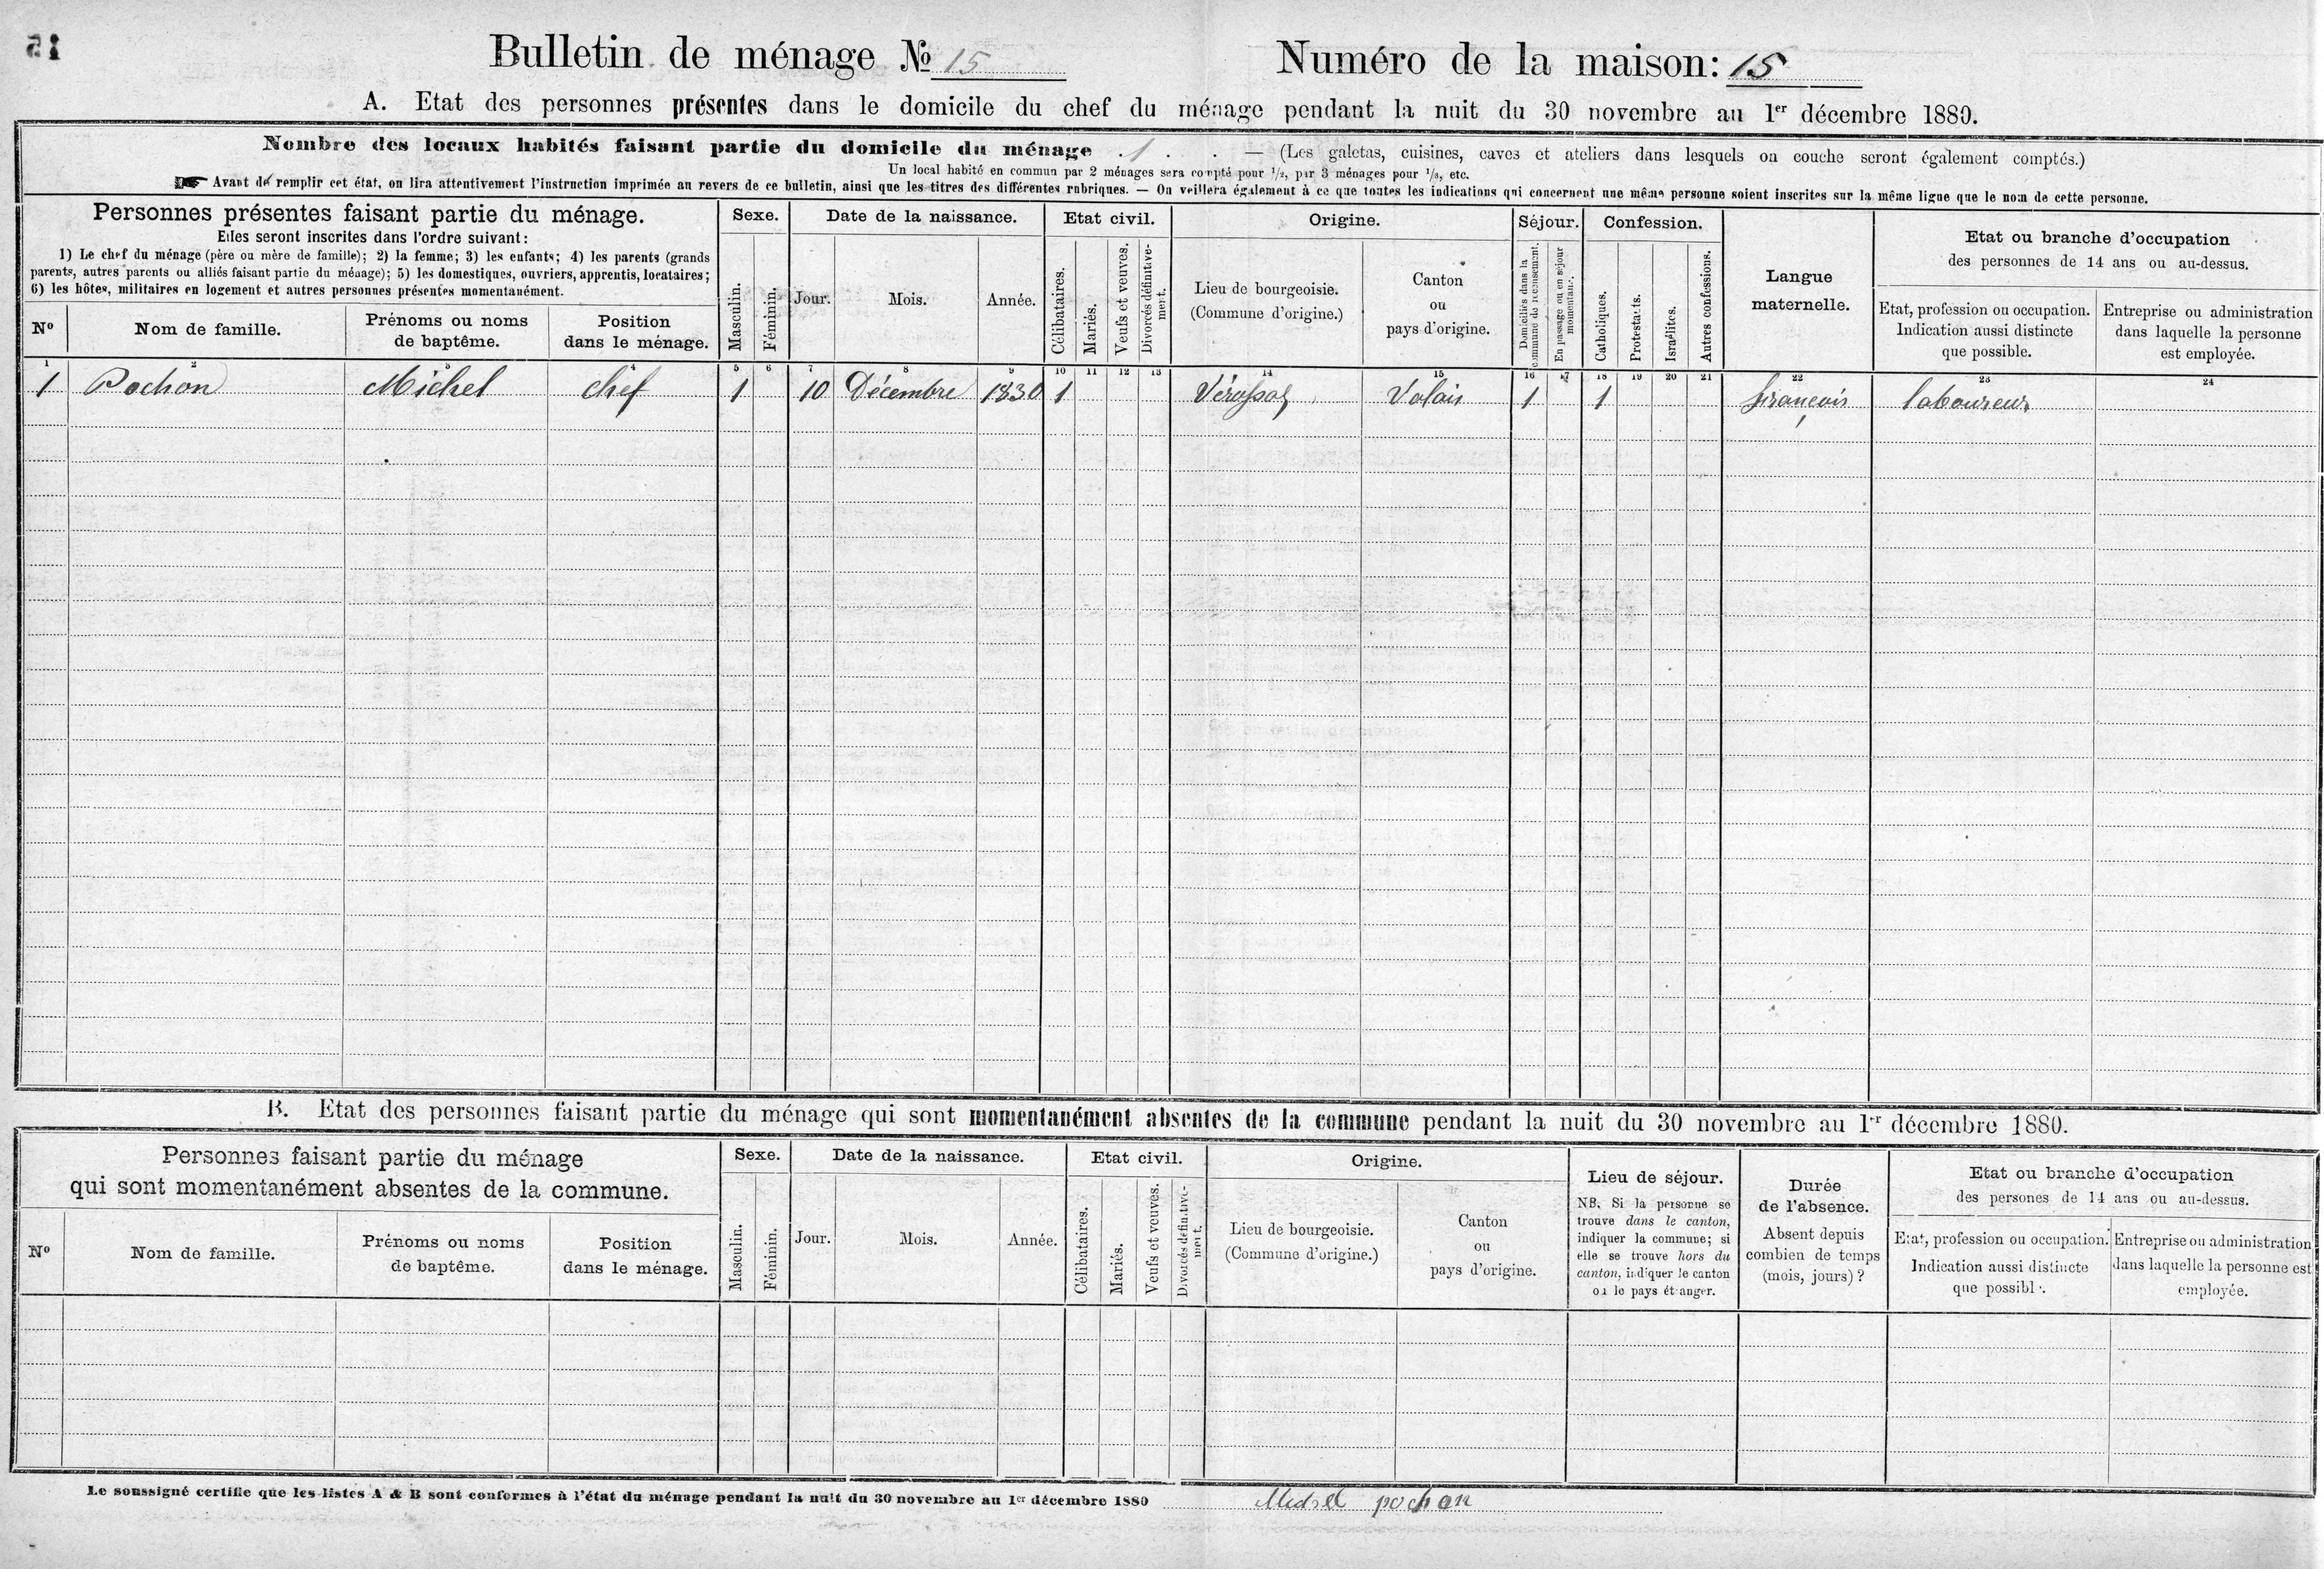 15
Bulletin de ménage № 15
Numéro de la maison: 15
A. Etat des personnes présentes dans le domicile du chef du ménage pendant la nuit du 30 novembre au 1er décembre 1880.
Nombre des locaux habités faisant partie du domicile du ménage . 1 . . — (Les galetas, cuisines, caves et ateliers dans lesquels on couche seront également comptés.)
Un local habité en commun par 2 ménages sera compté pour 1/2, par 3 ménages pour 1/3, etc.
☛ Avant de remplir cet état, on lira attentivement l'instruction imprimée au revers de ce bulletin, ainsi que les titres des différentes rubriques. — On veillera également à ce que toutes les indications qui concernent une même personne soient inscrites sur la même ligne que le nom de cette personne.
Personnes présentes faisant partie du ménage.
Elles seront inscrites dans l'ordre suivant:
1) Le chef du ménage (père ou mère de famille); 2) la femme; 3) les enfants; 4) les parents (grands
parents, autres parents ou alliés faisant partie du ménage); 5) les domestiques, ouvriers, apprentis, locataires;
6) les hôtes, militaires en logement et autres personnes présentes momentanément.
No
Nom de famille.
Prénoms ou noms
de baptême.
Position
dans le ménage.
Sexe.
Masculin.
Féminin.
Date de la naissance.
Jour.
Mois.
Année.
Etat civil.
Célibataires.
Mariés.
Veufs et veuves.
Divorcés définitive-
ment.
Origine.
Lieu de bourgeoisie.
(Commune d'origine.)
Canton
ou
pays d'origine.
Séjour.
Domiciliés dans la
commune de recensement.
En passage ou en séjour
momentané.
Confession.
Catholiques.
Protestants.
Israélites.
Autres confessions.
Langue
maternelle.
Etat ou branche d'occupation
des personnes de 14 ans ou au-dessus.
Etat, profession ou occupation.
Indication aussi distincte
que possible.
Entreprise ou administration
dans laquelle la personne
est employée.
1 2 3 4 5 6 7 8 9 10 11 12 13 14 15 16 17 18 19 20 21 22 23 24
1 Pochon Michel chef 1 10 Décembre 1830 1 Vérossaz Valais 1 1 françois laboureur
B. Etat des personnes faisant partie du ménage qui sont momentanément absentes de la commune pendant la nuit du 30 novembre au 1er décembre 1880.
Personnes faisant partie du ménage
qui sont momentanément absentes de la commune.
No
Nom de famille.
Prénoms ou noms
de baptême.
Position
dans le ménage.
Sexe.
Masculin.
Féminin.
Date de la naissance.
Jour.
Mois.
Année.
Etat civil.
Célibataires.
Mariés.
Veufs et veuves.
Divorcés définitive-
ment.
Origine.
Lieu de bourgeoisie.
(Commune d'origine.)
Canton
ou
pays d'origine.
Lieu de séjour.
NB. Si la personne se
trouve dans le canton,
indiquer la commune; si
elle se trouve hors du
canton, indiquer le canton
ou le pays étranger.
Durée
de l'absence.
Absent depuis
combien de temps
(mois, jours)?
Etat ou branche d'occupation
des persones de 14 ans ou au-dessus.
Etat, profession ou occupation.
Indication aussi distincte
que possible.
Entreprise ou administration
dans laquelle la personne est
employée.
Le soussigné certifie que les listes A & B sont conformes à l'état du ménage pendant la nuit du 30 novembre au 1er décembre 1880 Michel pochon